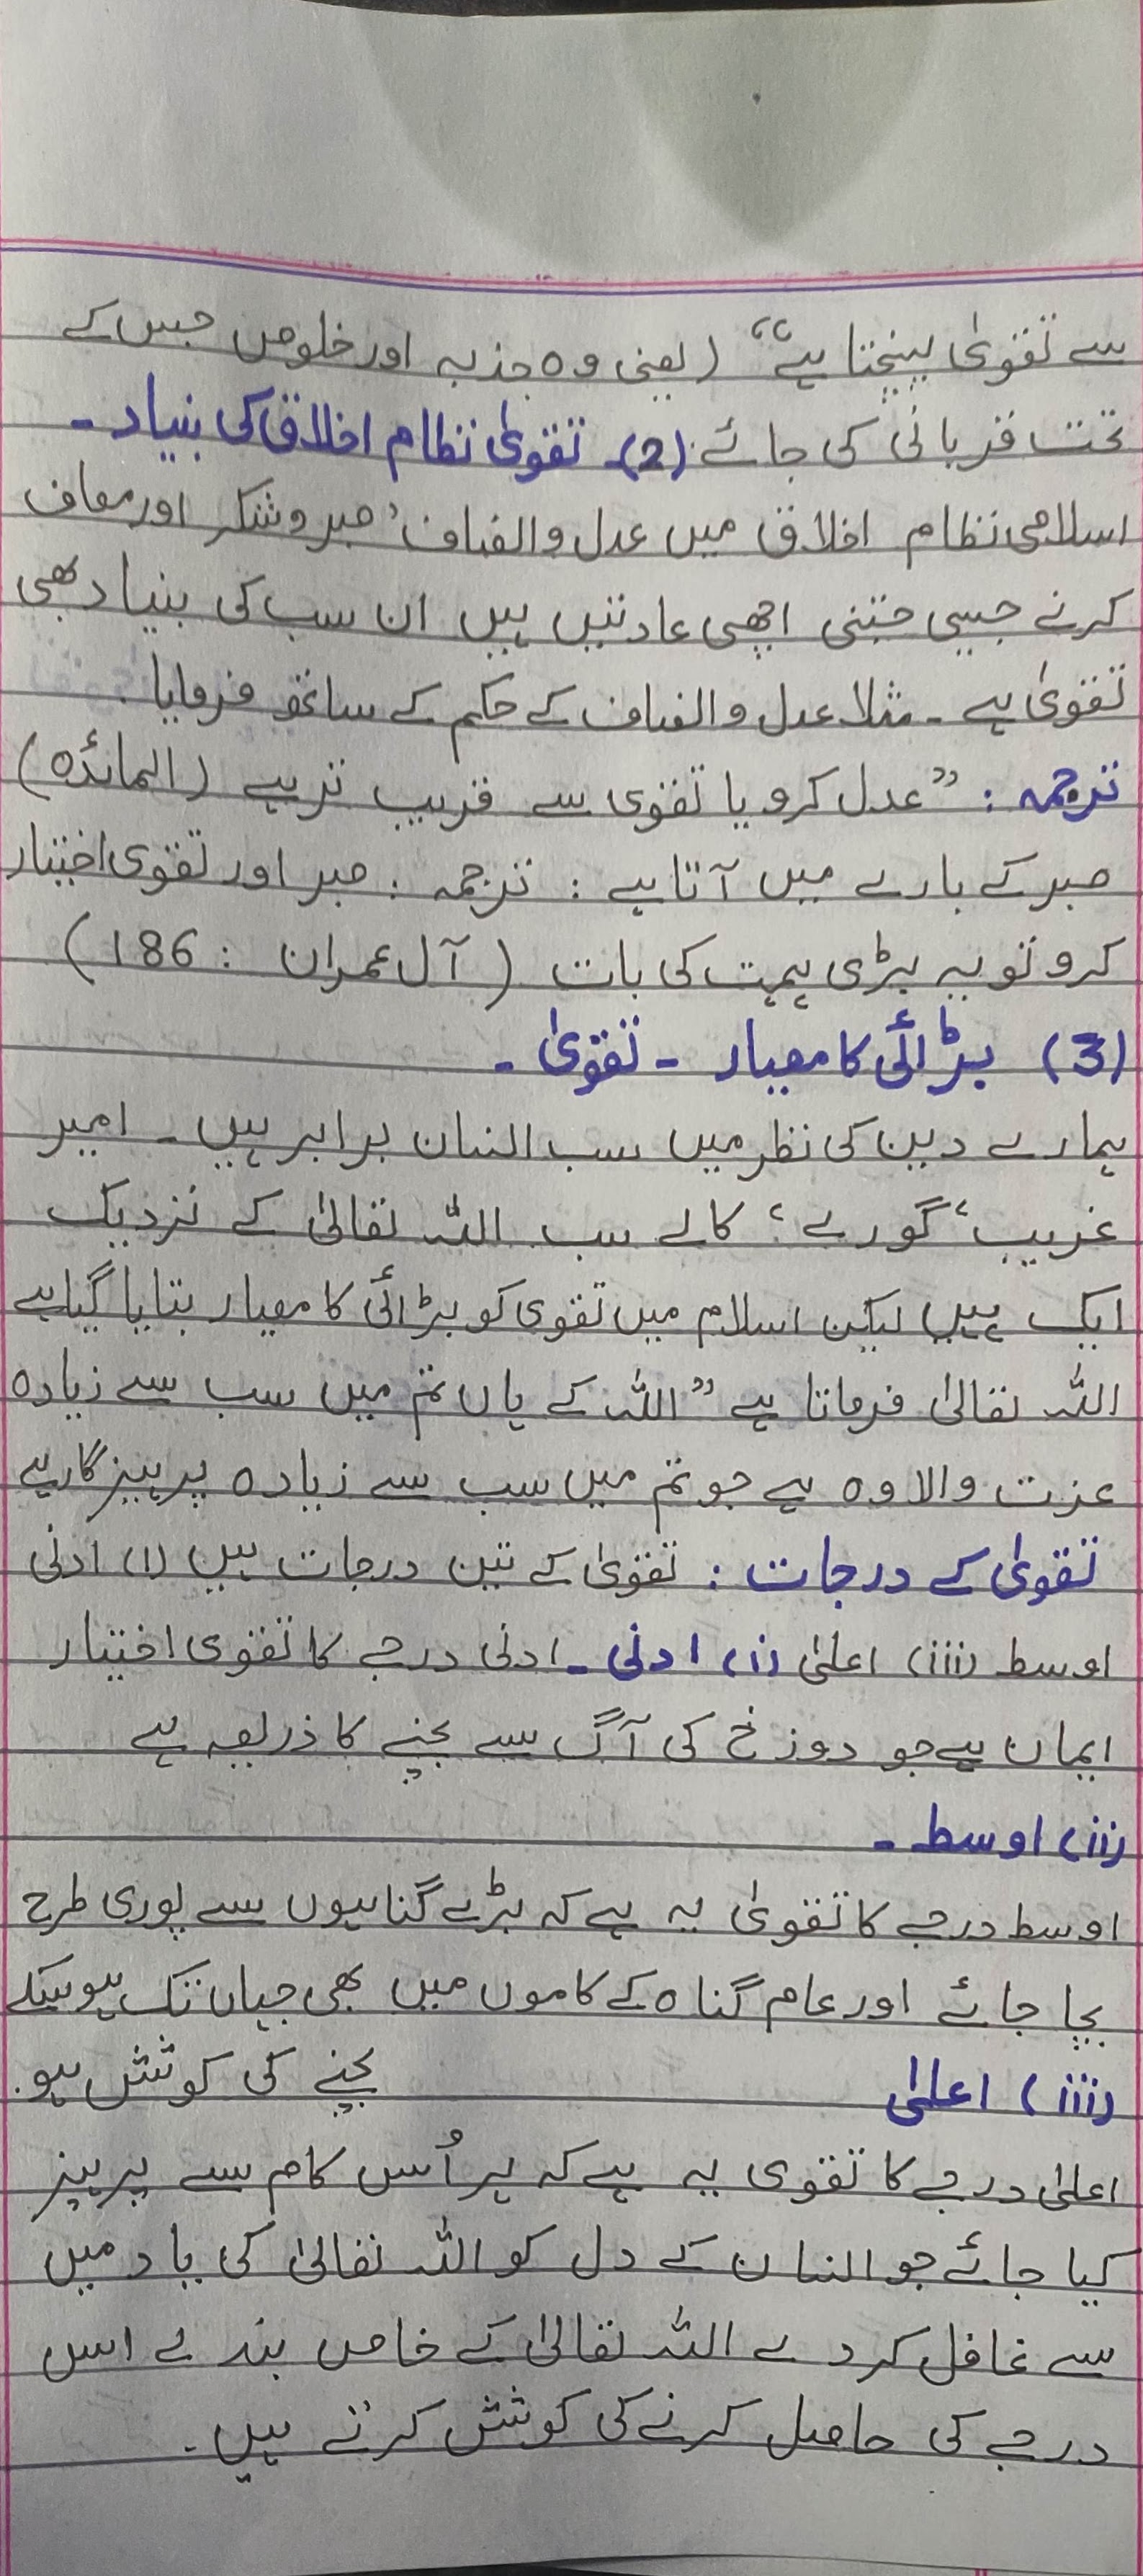 سے تقویٰ پہنچتا ہے“ (یعنی وہ جذبہ اور خلوص جس کے
تحت قربانی کی جائے (2)۔ تقویٰ نظام اخلاق کی بنیاد ۔
اسلامی نظام اخلاق میں عدل و انصاف، صبر و شکر اور معاف
کرنے جیسی جتنی اچھی عادتیں ہیں ان سب کی بنیاد بھی
تقویٰ ہے ۔ مثلا عدل و انصاف کے حکم کے ساتھ فرمایا ۔
ترجمہ : ”عدل کرو یا تقوی سے قریب تر ہے (المائدہ)
صبر کے بارے میں آتا ہے : ترجمہ : صبر اور تقوی اختیار
کرو تو یہ بڑی ہمت کی بات ( آل عمران : 186)
(3) بڑائی کا معیار ۔ تقویٰ ۔
ہمارے دین کی نظر میں سب انسان برابر ہیں ۔ امیر
غریب، گورے، کالے سب اللہ تعالیٰ کے نزدیک
ایک ہیں لیکن اسلام میں تقوی کو بڑائی کا معیار بتایا گیا ہے
اللہ تعالیٰ فرماتا ہے ”اللہ کے ہاں تم میں سب سے زیادہ
عزت والا وہ ہے جو تم میں سب سے زیادہ پرہیز گار ہے
تقویٰ کے درجات : تقویٰ کے تین درجات ہیں (i) ادنی
اوسط (iii) اعلیٰ (i) ادنی ۔ ادنی درجے کا تقوی اختیار
ایمان ہے جو دوزخ کی آگ سے بچنے کا ذریعہ ہے
(ii) اوسط ۔
اوسط درجے کا تقویٰ یہ ہے کہ بڑے گناہوں سے پوری طرح
بچا جائے اور عام گناہ کے کاموں میں بھی جہاں تک ہو سکے
بچنے کی کوشش ہو.
(iii) اعلیٰ
اعلیٰ درجے کا تقوی یہ ہے کہ ہر اُس کام سے پرہیز
کیا جائے جو انسان کے دل کو اللہ تعالیٰ کی یاد میں
سے غافل کر دے اللہ تعالیٰ کے خاص بندے اس
درجے کی حاصل کرنے کی کوشش کرتے ہیں ۔